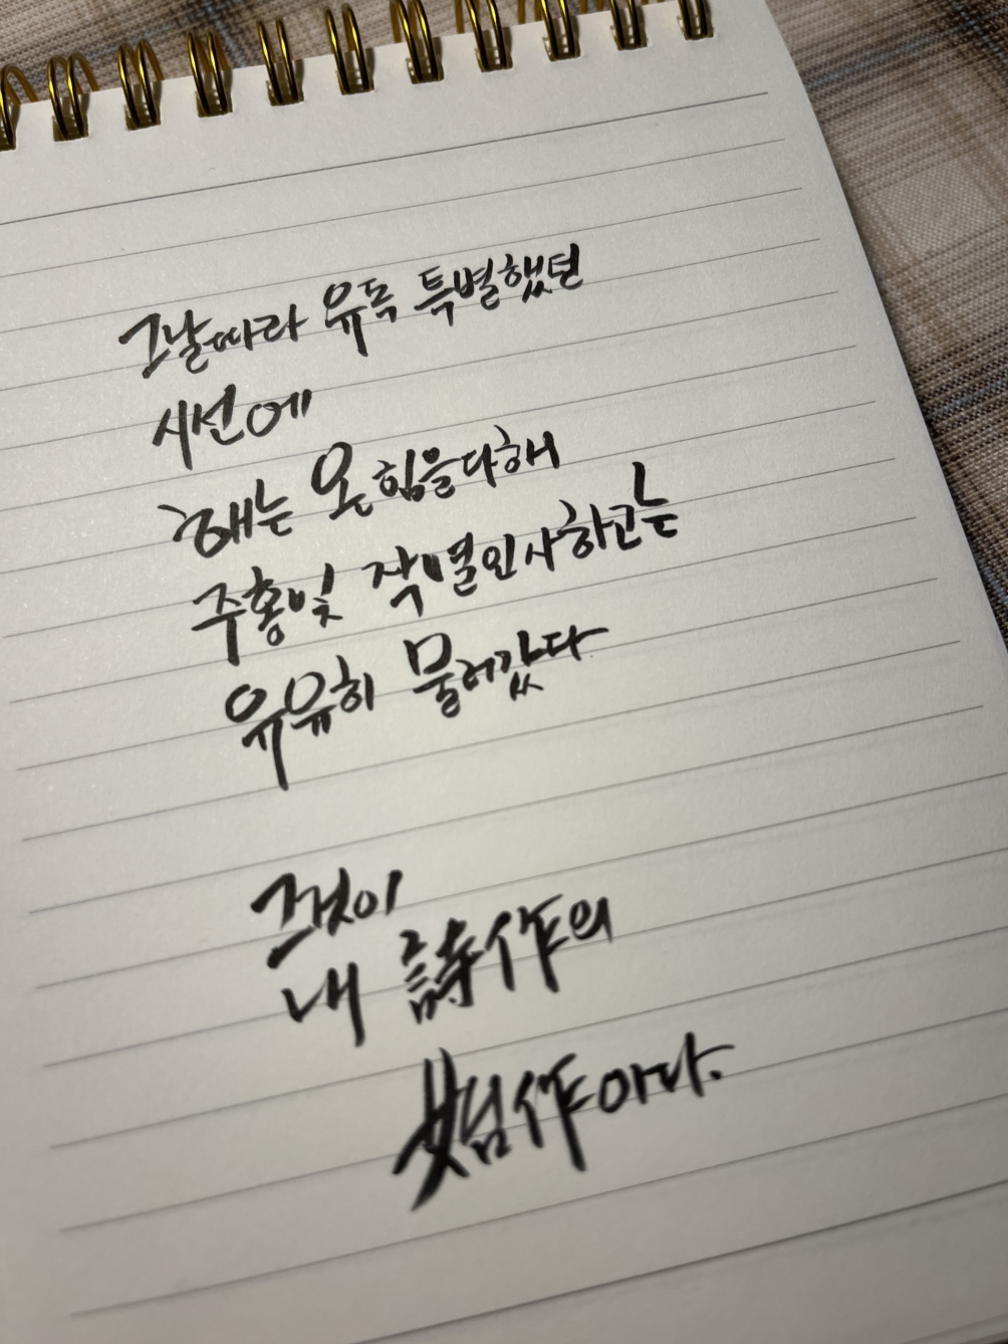 그날따라 유독 특별했던
시선에
해는 온 힘을 다해
주홍빛 작별인사하고는
유유히 물러갔다
그것이
내 詩作의
始作이다.